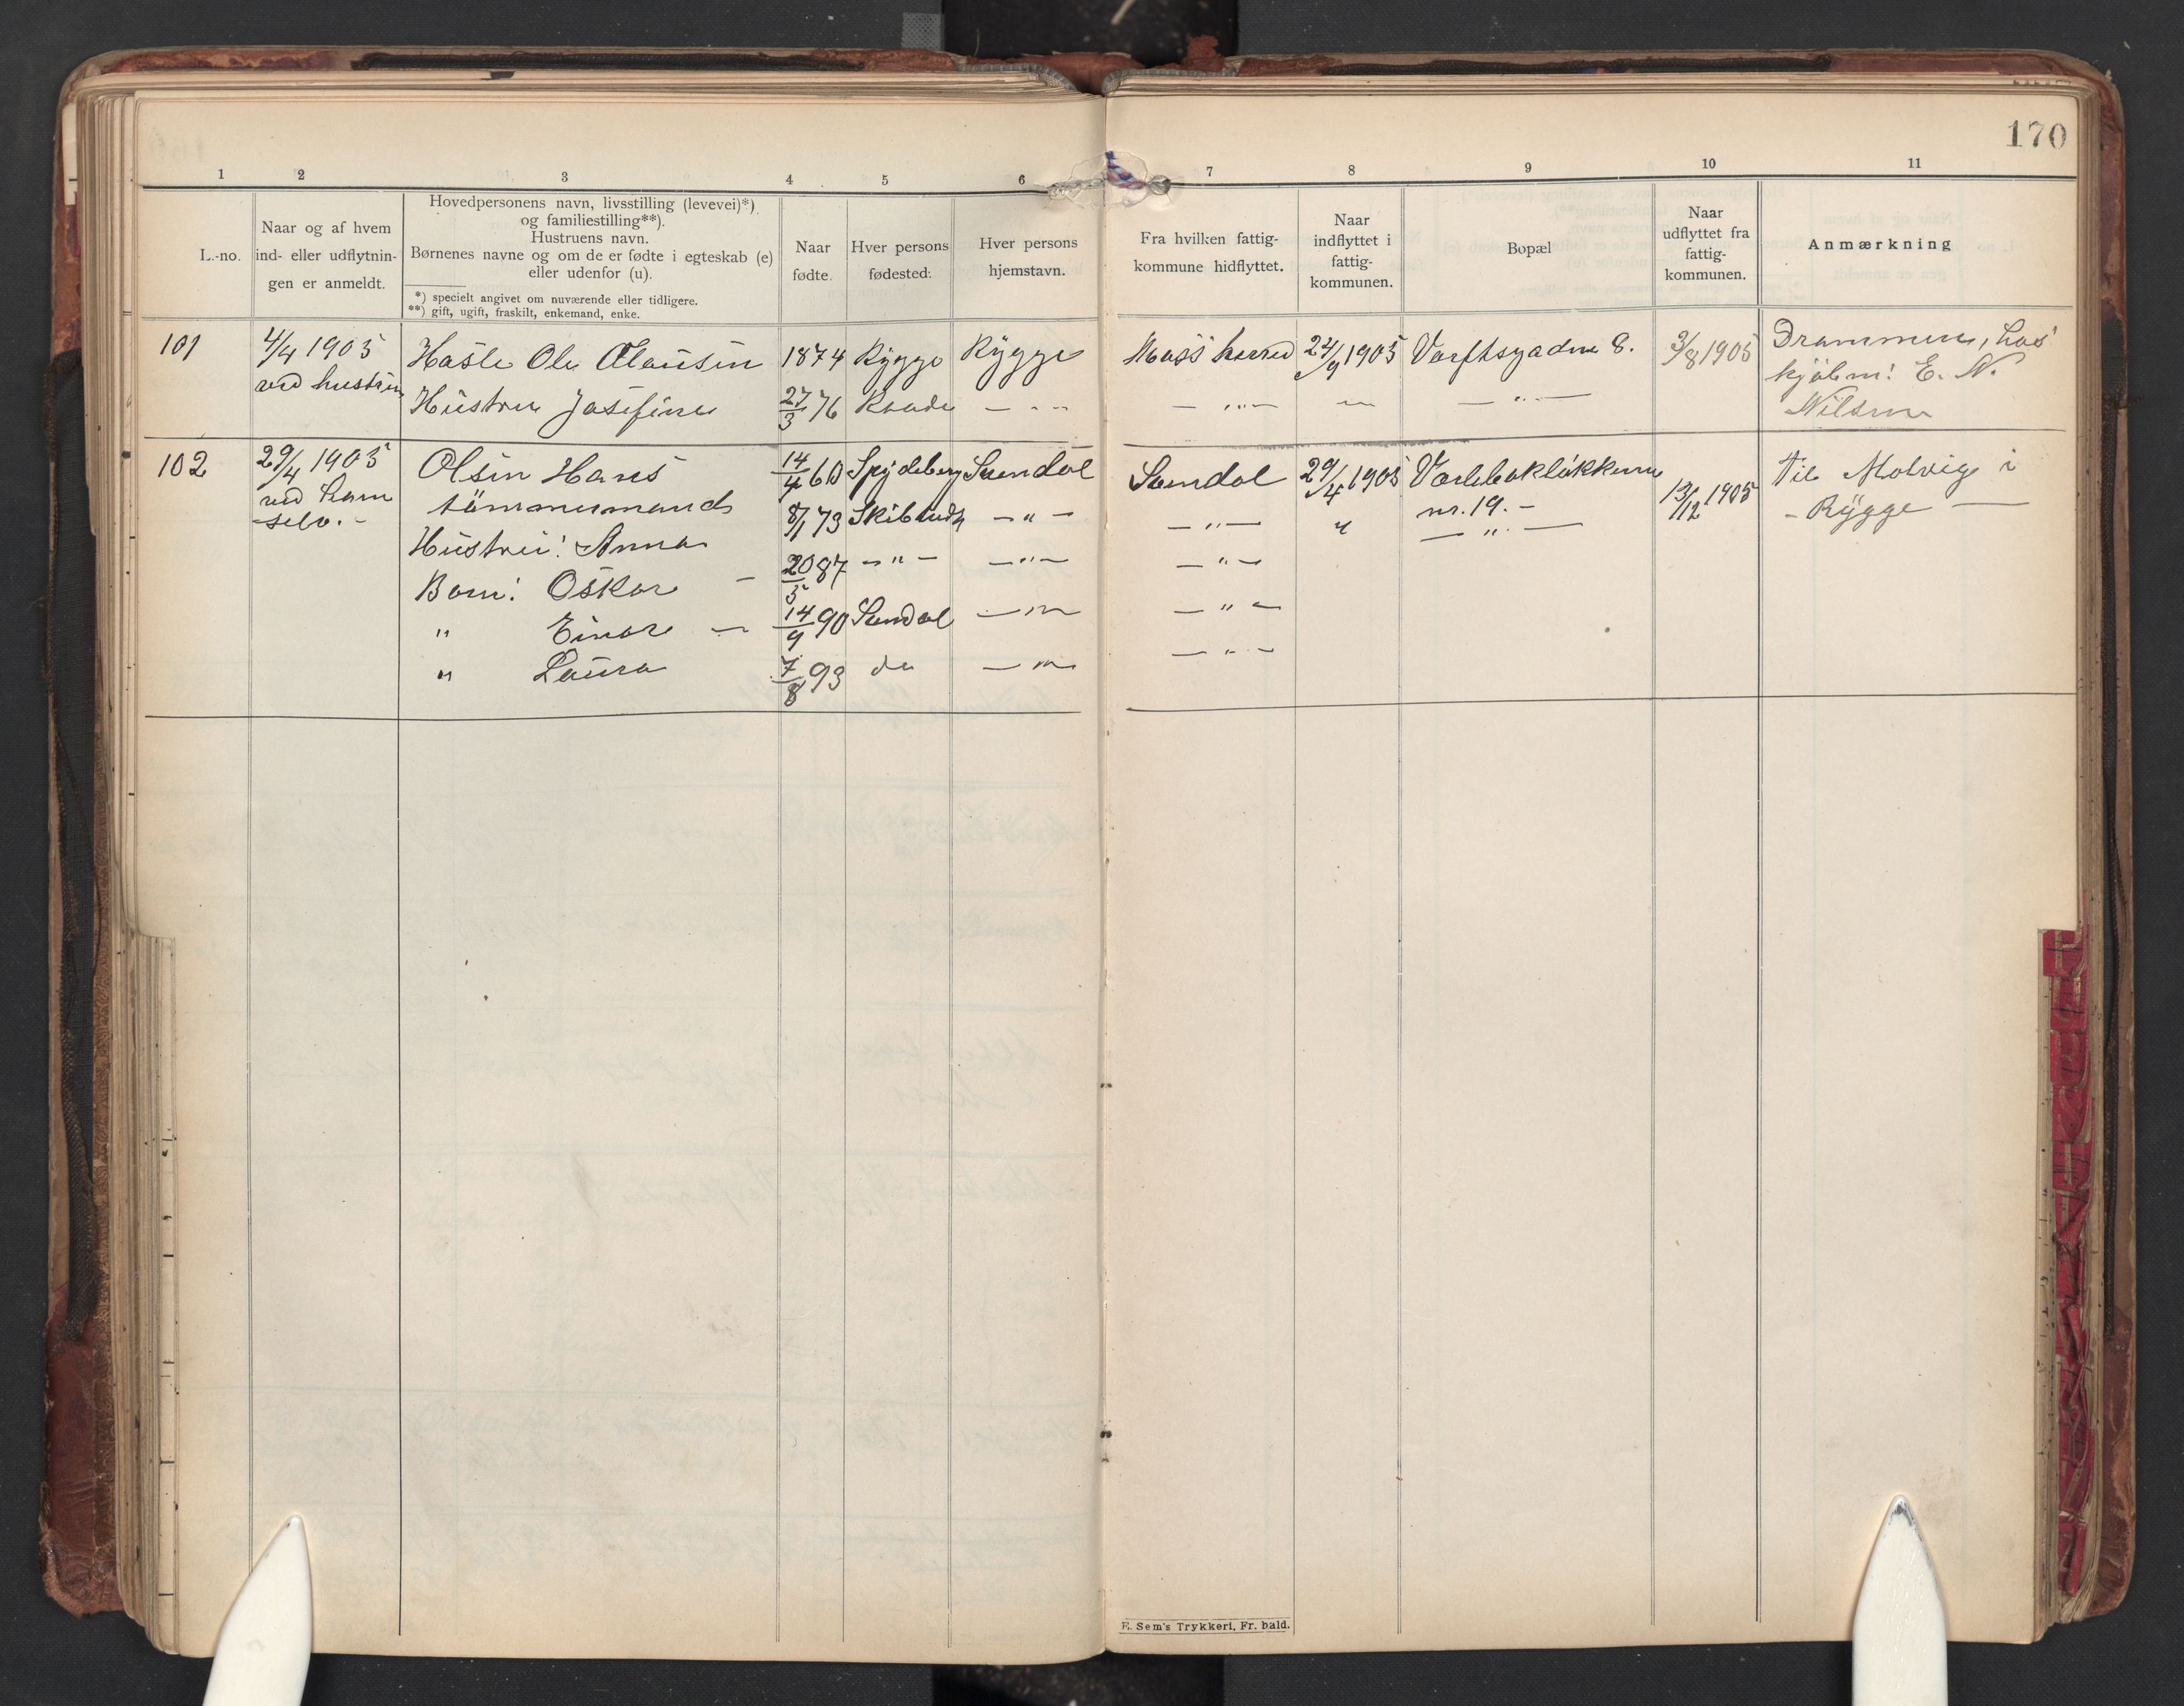 170
1 2 3 4 5 6 7 8 9 10 11
L.-no.
Naar og af hvem
ind- eller udflytnin-
gen er anmeldt.
Hovedpersonens navn, livsstilling (levevei)*)
og familiestilling**).
Hustruens navn.
Børnenes navne og om de er fødte i egteskab (e)
eller udenfor (u).
*) specielt angivet om nuværende eller tidligere.
**) gift, ugift, fraskilt, enkemand, enke.
Naar
fødte.
Hver persons
fødested.
Hver persons
hjemstavn.
Fra hvilken fattig-
kommune hidflyttet.
Naar
indflyttet i
fattig-
kommunen.
Bopæl
Naar
udflyttet fra
fattig-
kommunen.
Anmærkning
101
4/4 1905
ved hustru
Hasle Ole Olausen 1874 Rygge Rygge
Hustru Josefine 27/3 76 Raade — " —
Moss 1905 Værftsgaden 8. 3/8 1905
— " — " — " —
Drammen, hos
kjøbm: E. N.
Nilsen
102
29/4 1905
ved ham
selv. -
Olsen Hans 14/4 60 Spydeberg Somdal
tømmermand
Hustru: Anna 8/1 73 Skibtvedt — " —
Barn: Oskar — 20/5 87 — " — — " —
" Einar — 14/9 90 — " —
" Laura 7/8 93 do — " —
29/4 1905
nr. 19. -
— " — " — " —
— " —
— " —
— " —
13/12 1905
til Molvig i
- Rygge —
E. Sem's Trykkeri, Fr. hald.